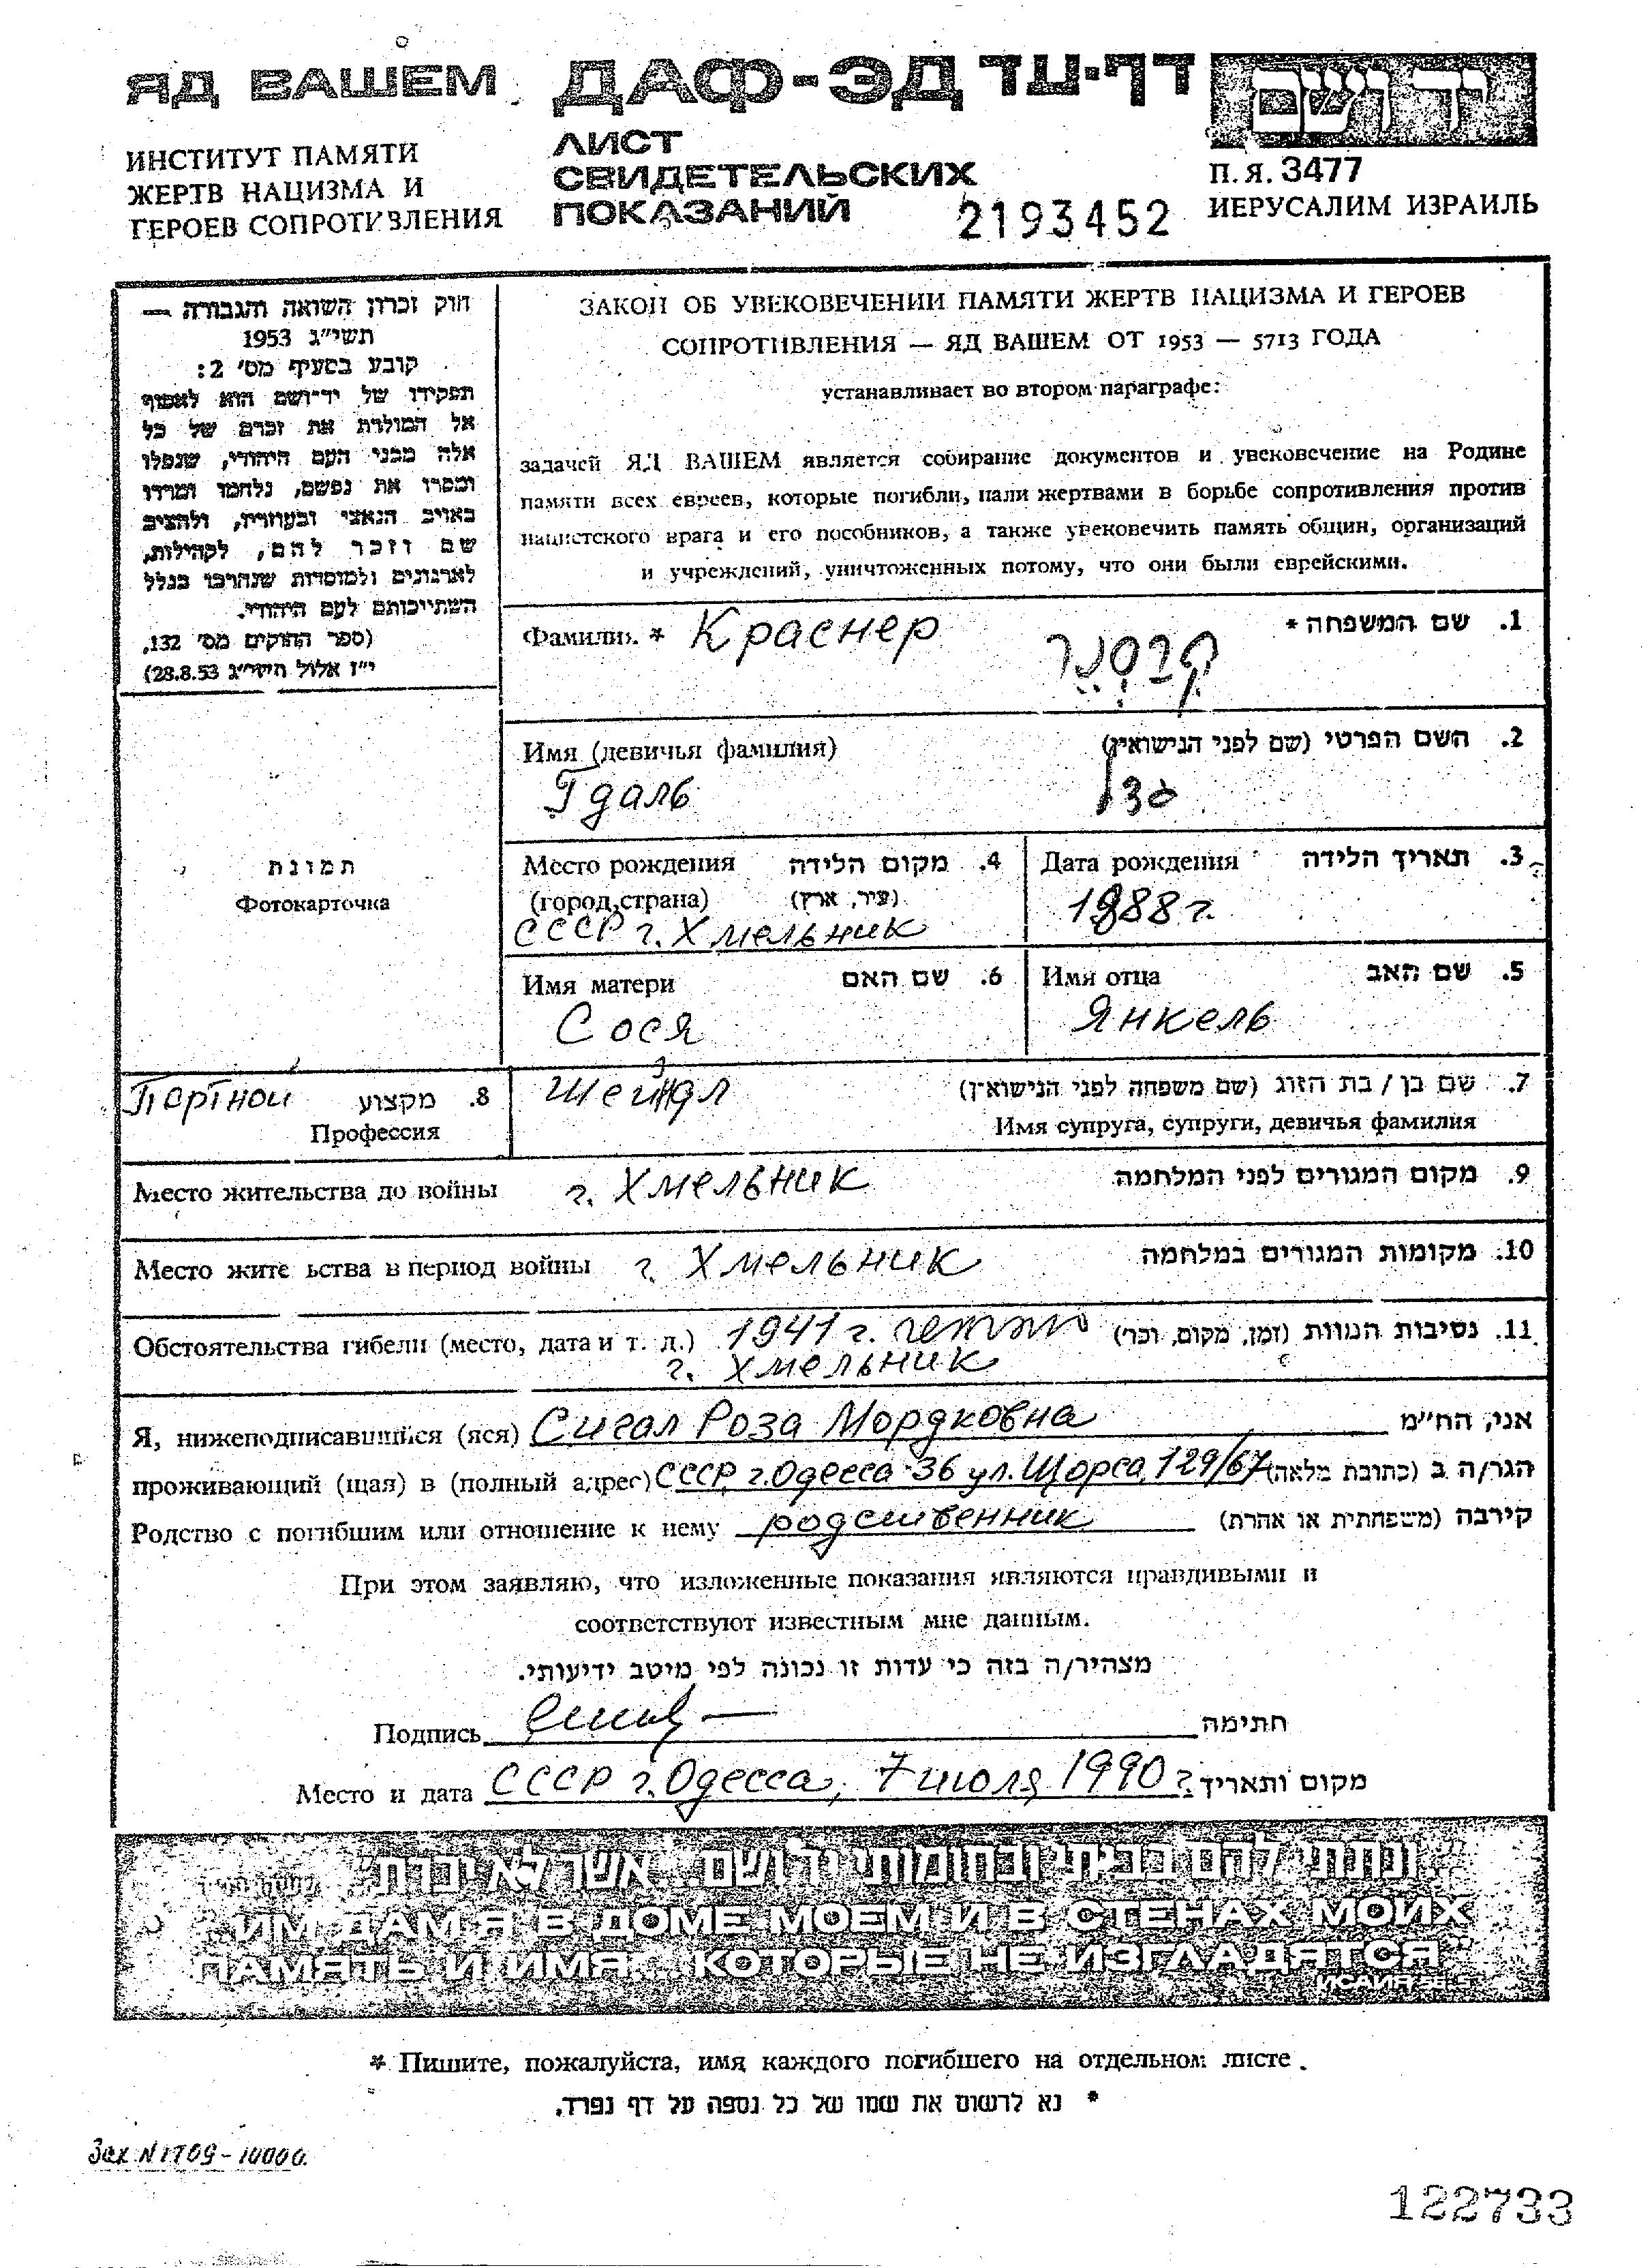 ЯД ВАШЕМ
ИНСТИТУТ ПАМЯТИ
ЖЕРТВ НАЦИЗМА И
ГЕРОЕВ СОПРОТИВЛЕНИЯ
ДАФ-ЭД דף-עד
ЛИСТ
СВИДЕТЕЛЬСКИХ
ПОКАЗАНИЙ
2193452
יד ושם
П.Я. 3477
ИЕРУСАЛИМ ИЗРАИЛЬ
חוק זכרון השואה והגבורה —
תשי״ג 1953
קובע בסעיף מס׳ 2:
תפקידו של יד-ושם הוא לאסוף
אל המולדת את זכרם של כל
אלה מבני העם היהודי, שנפלו
ומסרו את נפשם, נלחמו ומרדו
באויב הנאצי ובעוזריו, ולהציב
שם וזכר להם, לקהילות,
לארגונים ולמוסדות שנחרבו בגלל
השתייכותם לעם היהודי.
(ספר החוקים מס׳ 132,
י״ז אלול תשי״ג 28.8.53)
ЗАКОН ОБ УВЕКОВЕЧЕНИИ ПАМЯТИ ЖЕРТВ НАЦИЗМА И ГЕРОЕВ
СОПРОТИВЛЕНИЯ — ЯД ВАШЕМ ОТ 1953 — 5713 ГОДА
устанавливает во втором параграфе:
задачей ЯД ВАШЕМ является собирание документов и увековечение на Родине
памяти всех евреев, которые погибли, пали жертвами в борьбе сопротивления против
нацистского врага и его пособников, а также увековечить память общин, организаций
и учреждений, уничтоженных потому, что они были еврейскими.
Фамилия * Краснер 1. שם המשפחה *
קרסנר
Имя (девичья фамилия) 2. השם הפרטי (שם לפני הנישואין)
Гдаль
תמונת
Фотокарточка
Место рождения 4. מקום הלידה
(город, страна) (עיר, ארץ)
СССР г. Хмельник
Дата рождения 3. תאריך הלידה
1888 г.
Имя матери 6. שם האם
Сося
Имя отца 5. שם האב
Янкель
Портной 8. מקצוע
Профессия
7. שם בן / בת הזוג (שם משפחה לפני הנישואין)
Имя супруга, супруги, девичья фамилия
Место жительства до войны г. Хмельник 9. מקום המגורים לפני המלחמה
Место жите ьства в период войны г. Хмельник 10. מקומות המגורים במלחמה
Обстоятельства гибели (место, дата и т. д.) 1941 г. гетто 11. נסיבות המוות (זמן, מקום, וכו׳)
г. Хмельник
Я, нижеподписавшийся (яся) Сигал Роза Мордковна אני, הח״מ
проживающий (щая) в (полный адрес) СССР, г. Одесса-36 ул. Щорса, 129/67 הגר/ה ב (כתובת מלאה)
Родство с погибшим или отношение к нему родственник קירבה (משפחתית או אחרת)
При этом заявляю, что изложенные показания являются правдивыми и
соответствуют известным мне данным.
מצהיר/ה בזה כי עדות זו נכונה לפי מיטב ידיעותי.
Подпись חתימה
Место и дата СССР г. Одесса, 7 июля 1990 г. מקום ותאריך
״ונתתי להם בביתי ובחומותי יד ושם... אשר לא יכרת״
"ИМ ДАМ Я В ДОМЕ МОЕМ И В СТЕНАХ МОИХ
ПАМЯТЬ И ИМЯ... КОТОРЫЕ НЕ ИЗГЛАДЯТСЯ"
ИСАИЯ 56.5
* Пишите, пожалуйста, имя каждого погибшего на отдельном листе.
* נא לרשום את שמו של כל נספה על דף נפרד.
Зак N 1709-10000.
122733